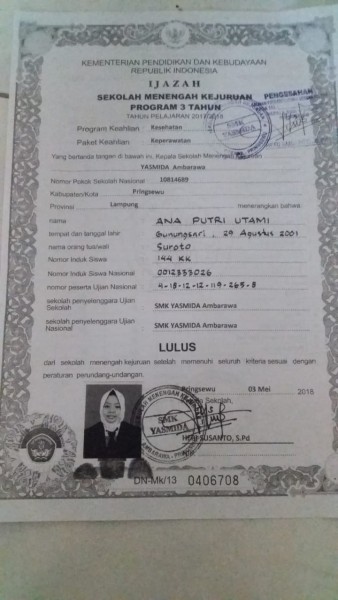 KEMENTERIAN PENDIDIKAN DAN KEBUDAYAAN
REPUBLIK INDONESIA
IJAZAH
SEKOLAH MENENGAH KEJURUAN
PROGRAM 3 TAHUN
PENGESAHAN
TAHUN PELAJARAN 2017/2018
Program Keahlian : Kesehatan
Paket Keahlian : Keperawatan
Yang bertanda tangan di bawah ini, Kepala Sekolah Menengah Kejuruan
YASMIDA Ambarawa
Nomor Pokok Sekolah Nasional : 10814689
Kabupaten/Kota : Pringsewu
Provinsi Lampung menerangkan bahwa:
nama : ANA PUTRI UTAMI
tempat dan tanggal lahir : Gunungsari, 29 Agustus 2001
nama orang tua/wali : Suroto
Nomor Induk Siswa : 144 KK
Nomor Induk Siswa Nasional : 0012333026
nomor peserta Ujian Nasional : 4-18-12-12-119-265-8
sekolah penyelenggara Ujian Sekolah : SMK YASMIDA Ambarawa
sekolah penyelenggara Ujian Nasional : SMK YASMIDA Ambarawa
LULUS
dari sekolah menengah kejuruan setelah memenuhi seluruh kriteria sesuai dengan
peraturan perundang-undangan.
Pringsewu 03 Mei 2018
Sekolah,
SMK
YASMIDA
SUSANTO, S.Pd
DN-Mk/13 0406708